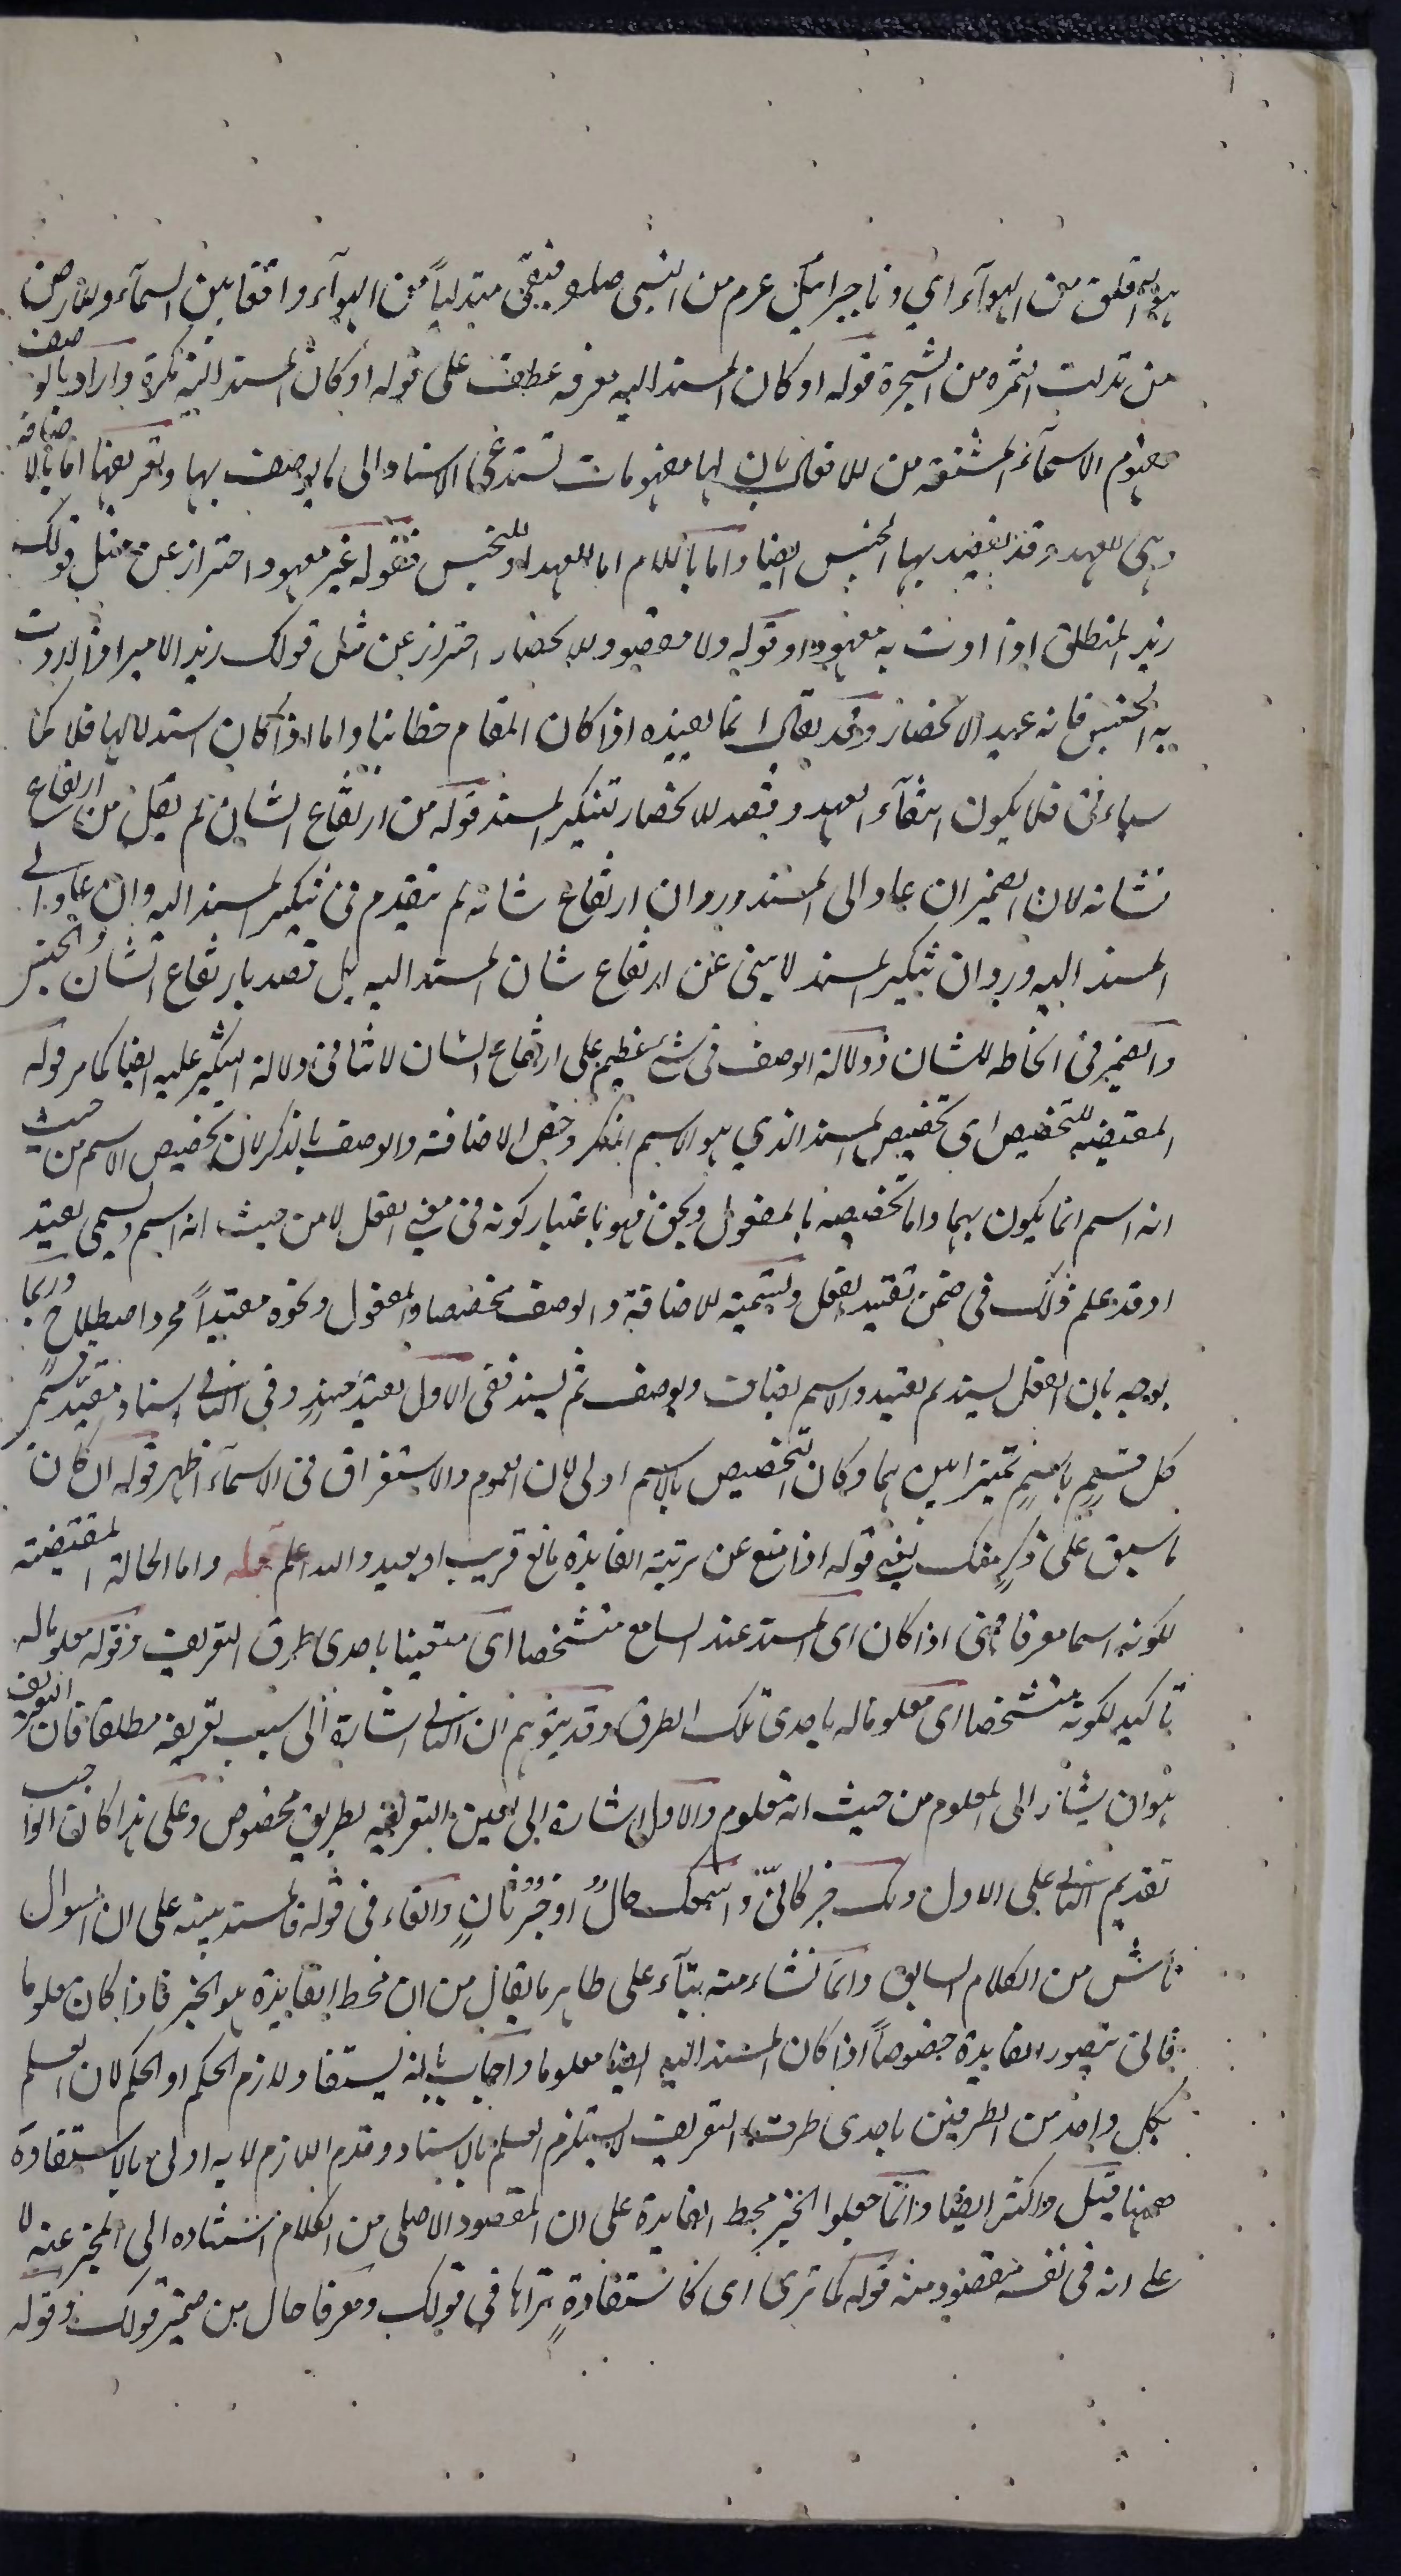 هو التعلق من الهوآء اي دنا جبرائيل عم من النبي صلعم فبقي متدلياً من الهوآء واقفا بين السمآء والارض
من تدلت الثمره من الشجرة قوله او كان المسند اليه معرفه عطف على قوله او كان المسند اليه نكرة واراد بالوصف
مفهوم الاسمآء المشتقه من الافعال بان لها مفهومات تستدعى الاسناد الى ما يوصف بها وتعريفها اما بالاضافة
وهى للعهد وقد يفيد بها الجنس ايضا واما باللام اما للعهد او للجنس فقوله غير معهود احتراز عن مثل قولك
زيد المنطلق اذا اردت به معهودا وقوله ولا مقصود للانحصار احتراز عن مثل قولك زيد الامير اذا اردت
به الجنس فانه عهد الانحصار وقد يقال انما يفيده اذا كان المقام خطابيا واما اذا كان استدلاليا فلا كما
سياءتى فلا يكون انتفآء العهد وقصد الانحصار تنكير المسند قوله من ارتفاع الشان لم يقل من ارتفاع
شانه لان الضمير ان عاد الى المسند ورد ان ارتفاع شانه لم يتقدم فى تنكير المسند اليه وان عاد الى
المسند اليه ورد ان تنكير المسند لا ينبى عن ارتفاع شان المسند اليه بل قصد بارتفاع الشان الجنس
والضمير فى انحاطه للشان ودلالة الوصف فى شئ عظيم على ارتفاع الشان لا تنافى دلالة التنكير عليه ايضا كما مر قوله
المقتضيه للتخصيص اى تخصيص المسند الذي هو الاسم المنكر وخص الاضافة والوصف بالذكر لان تخصيص الاسم من حيث
انه اسم انما يكون بهما واما تخصيصه بالمفعول ونحوه فهو باعتبار كونه فى معنى الفعل لا من حيث انه اسم ويسمى تقييد
او قد علم ذلك فى ضمن تقييد الفعل وتسميته للاضافة والوصف تخصيصا والمفعول ونحوه مقيداً مجرد اصطلاح وربما
يوجه بان الفعل يسند ثم يقيد والاسم يضاف ويوصف ثم يسند ففى الاول تقييد مسند وفى الثانى اسناد مقيد فسمى
كل قسم باسم تمييزا بينهما وكان التخصيص بالاسم اولى لان العموم والاستغراق فى الاسمآء اظهر قوله ان كان
ما سبق على ذكر منك يعنى قوله اذا منع عن تربية الفايدة مانع قريب او بعيد والله اعلم قوله واما الحالة المقتضية
لكونه اسما معرفا فهى اذا كان اى المسند عند السامع متشخصا اى متعينا باحدى طرق التعريف وقوله معلوما له
تأكيد لكونه متشخصا اى معلوما له باحدى تلك الطرق وقد يتوهم ان الثانى اشارة الى سبب تعريفه مطلقا فان التعريف
هو ان يشار الى المعلوم من حيث انه معلوم والاول اشارة الى تعين التعريفيه بطريق مخصوص وعلى هذا كان الواجب
تقديم الثانى على الاول ولك خبر كانّ واسمك حالٌ او خبرٌ ثانٍ والفاء فى قوله فالمسند بينه على ان السوال
ناش من الكلام السابق وانما نشاء منه بنآء على ظاهر ما يقال من ان محط الفايدة هو الخبر فاذا كان معلوما
فانى تتصور الفايدة خصوصاً اذا كان المسند اليه ايضا معلوما واجاب بانه يستفاد لازم الحكم او الحكم لان العلم
بكل واحد من الطرفين باحدى طرق التعريف لا يستلزم العلم بالاسناد وقدم اللازم لانه اولى بالاستفادة
ههنا قيل واكثر ايضا وانما جعلوا الخبر محط الفايدة على ان المقصود الاصلى من الكلام اسناده الى المخبر عنه لا
على انه فى نفسه مقصود منه قوله كما ترى اى كاستفادةٍ تراها فى قولك ومعرفا حال من ضمير قولك وقوله